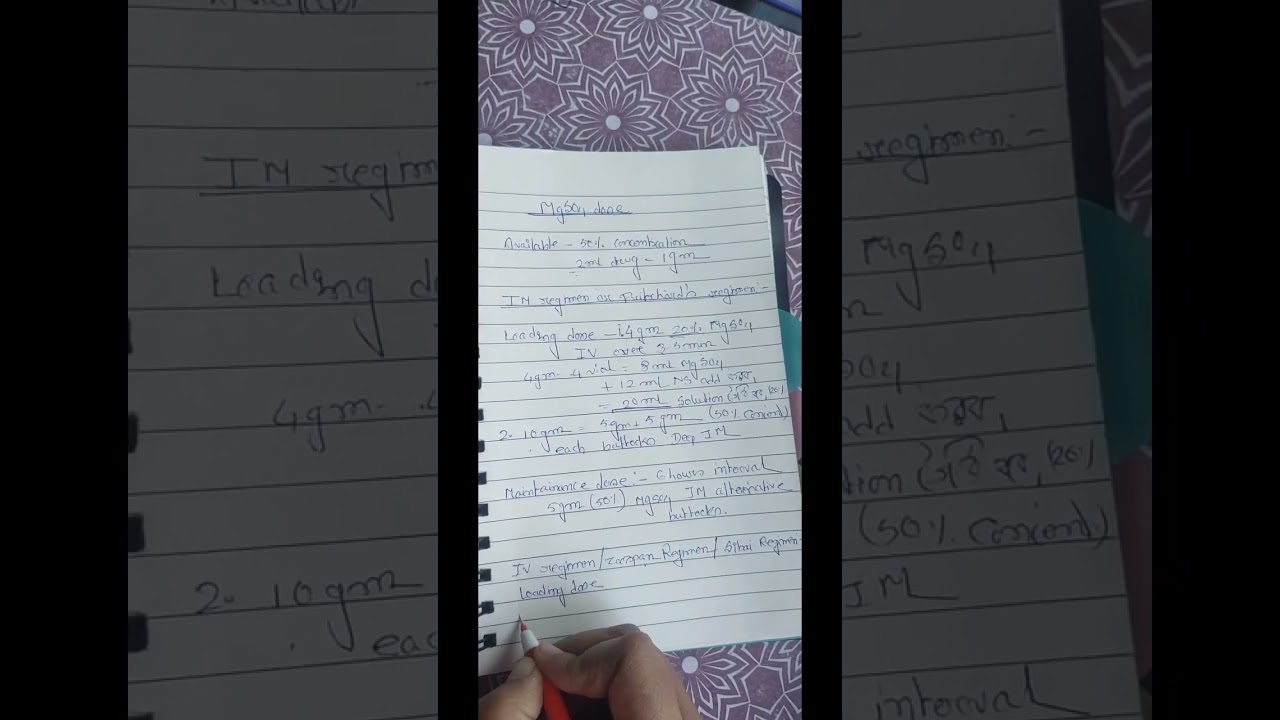 MgSO4 dose
Available - 50% concentration
2ml drug - 1gm
IM regimen or Pritchard's regimen:-
Loading dose - i.4gm 20% MgSO4
IV over 3 5min
4gm - 4 vial = 8ml MgSO4
+ 12ml NS add করব,
= 20ml solution তৈরি হব, 20%
2. 10gm = 5gm + 5gm (50% )
each buttocks Deep IM
Maintainance dose:- 6 hours interval
5gm (50%) MgSO4 IM alternative
buttocks.
IV regimen/Zuspan Regimen/Sibai Regimen-
Loading dose